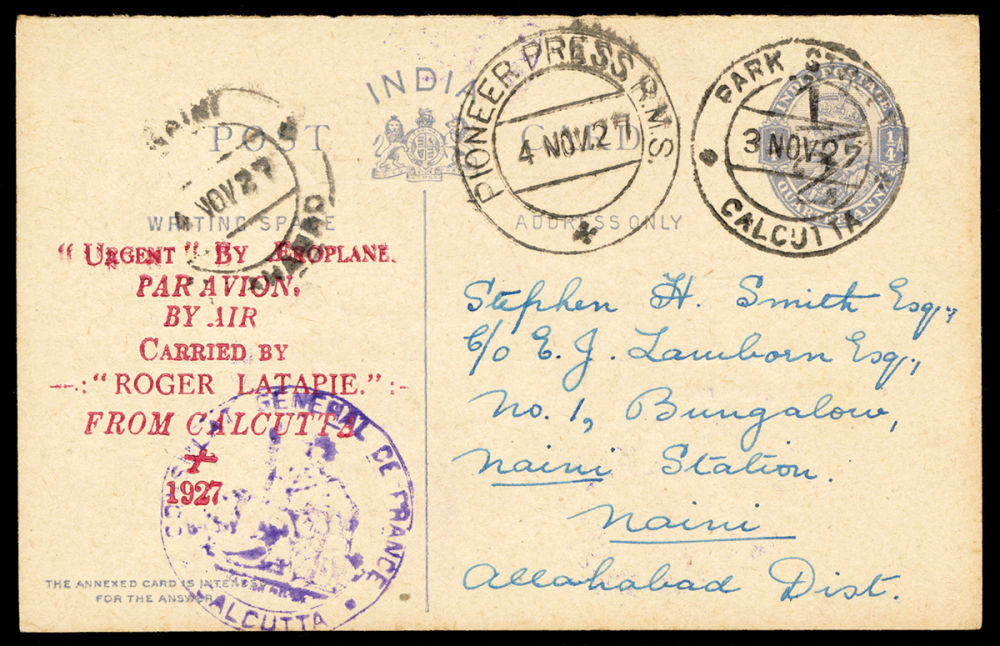 INDIA
POST CARD
WRITING SPACE
ADDRESS ONLY
PIONEER PRESS R.M.S.
4 NOV.27
PARK
3 NOV.27
CALCUTTA
QUARTER ANNA
4 NOV.27
"URGENT" BY AEROPLANE.
PAR AVION,
BY AIR
CARRIED BY
—.:"ROGER LATAPIE.":-
FROM CALCUTTA
1927
Stephen H. Smith Esq.,
C/o E. J. Lamborn Esq.,
No. 1, Bungalow,
Naini Station.
Naini
Allahabad Dist.
CONSULAT GENERAL DE FRANCE
CALCUTTA
THE ANNEXED CARD IS INTENDED
FOR THE ANSWER